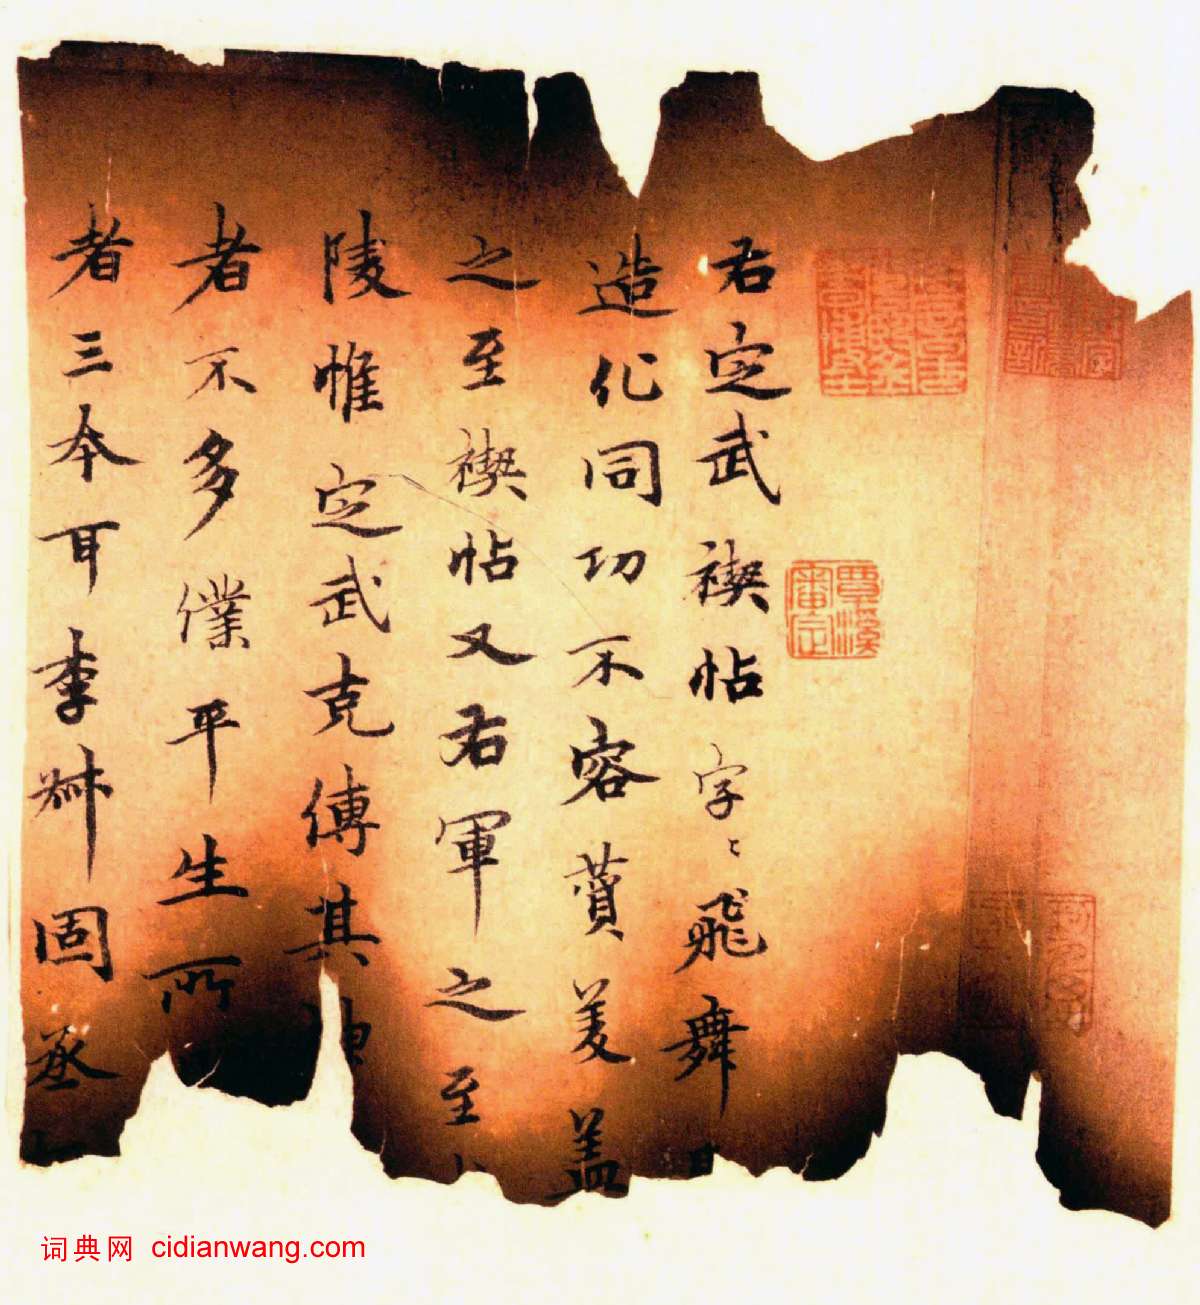 覃溪審定
右定武禊帖字〻飛舞
造化同功不容賛美盖
之至禊帖又右軍之至
陵惟定武克傳其
者不多僕平生所
者三本耳李叔固丞
词典网 cidianwang.com